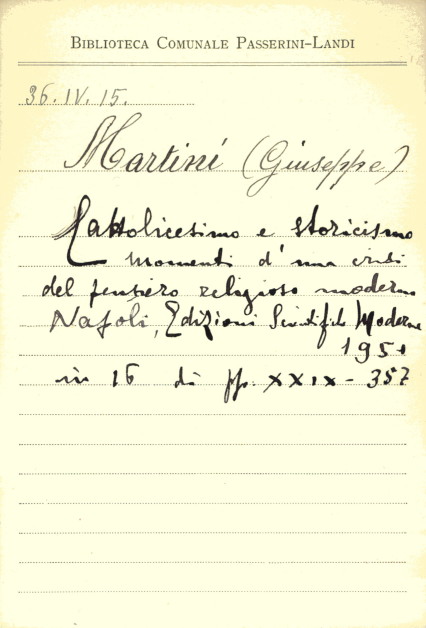 BIBLIOTECA COMUNALE PASSERINI-LANDI
36.IV.15.
Martini (Giuseppe)
Cattolicesimo e storicismo
momenti d'una crisi
del pensiero religioso moderno
Napoli, Edizioni Scientifiche Moderne
1951
in 16 di pp. XXIX-357